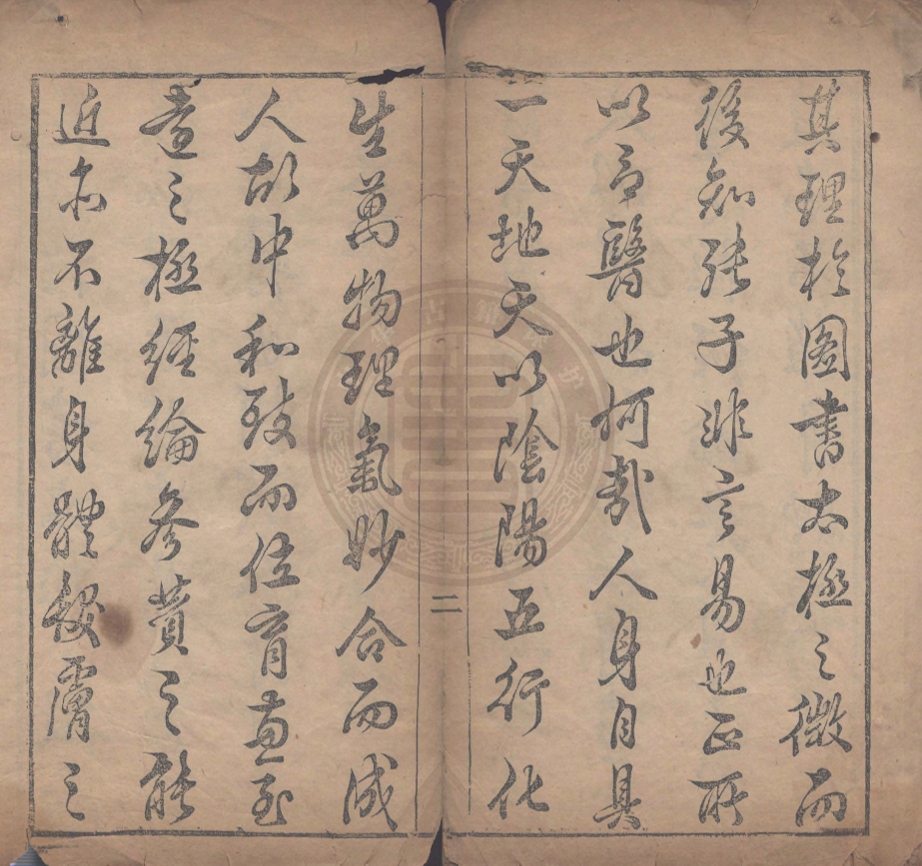 其理於圖書太極之微而
後知張子非言易也正所
以言醫也何哉人身自具
一天地天以陰陽五行化
二
生萬物理氣妙合而成
人故中和致而位育至
道之極經綸參贊之能
近亦不離身體髮膚之